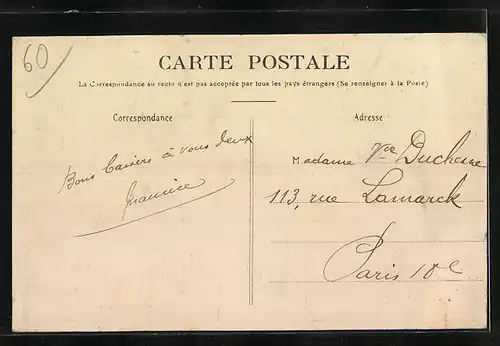 60
CARTE POSTALE
La Correspondance au recto n'est pas acceptée par tous les pays étrangers (Se renseigner à la Poste)
Correspondance
Adresse
Bons baisers à vous deux
Maurice
Madame Vve Duchesne
113, rue Lamarck
Paris 18e